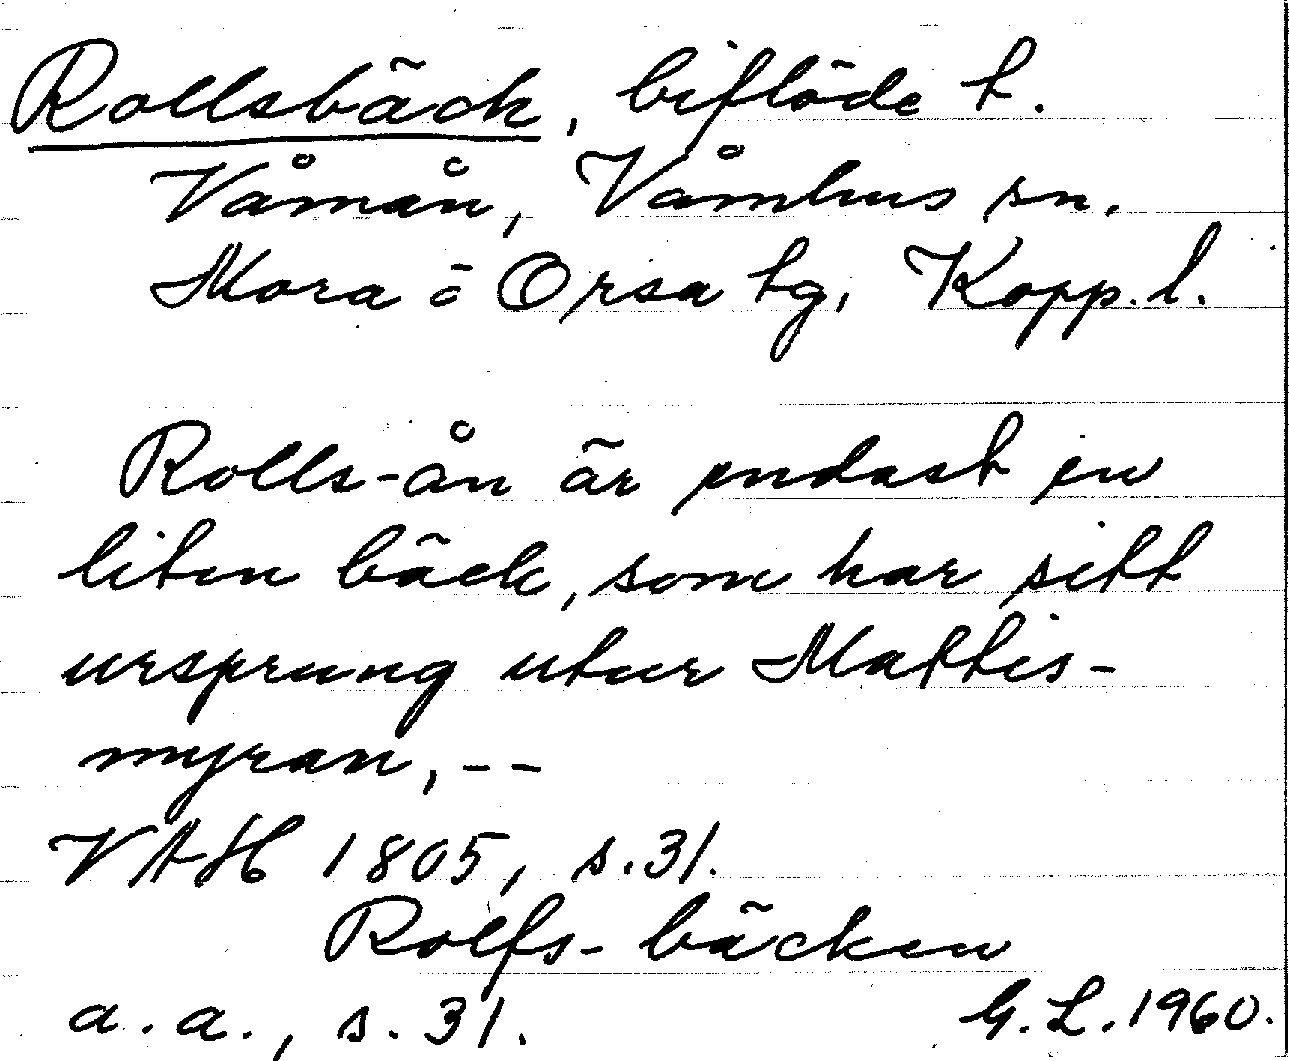 Rollsbäck, biflöde t.
Våmån, Våmhus sn.
Mora o Orsa tg, Kopp. l.
Rolls-ån är endast en
liten bäck, som har sitt
ursprung utur Mattis-
myran, --
VAH 1805, s. 31.
Rolfs-bäcken
a. a., s. 31.
G. L. 1960.